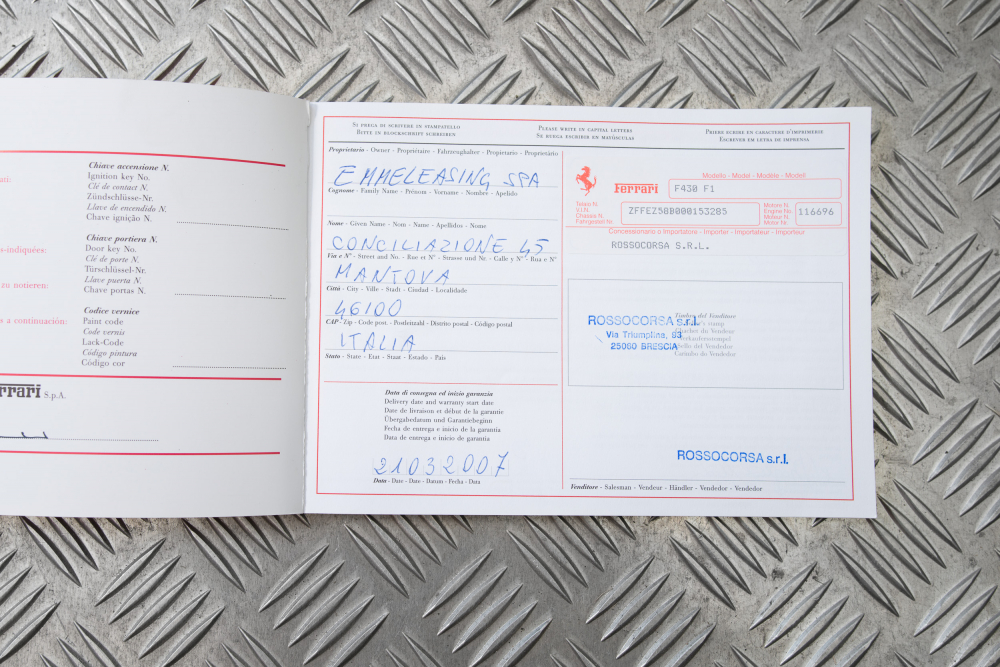 Chiave accensione N.
Ignition key No.
Clé de contact N.
Zündschlüsse-Nr.
Llave de encendido N.
Chave ignição N.
s-indiquées:
Chiave portiera N.
Door key No.
Clé de porte N.
Türschlüssel-Nr.
Llave puerta N.
Chave portas N.
zu notieren:
s a continuación:
Codice vernice
Paint code
Code vernis
Lack-Code
Código pintura
Código cor
rrari S.p.A.
Si prega di scrivere in stampatello
Bitte in blockschrift schreiben
Please write in capital letters
Se ruega escribir en mayúsculas
Prière ecrire en caractère d'imprimerie
Escrever em letra de imprensa
Proprietario - Owner - Propriétaire - Fahrzeughalter - Propietario - Proprietário
EMMELEASING SPA
Cognome - Family Name - Prénom - Vorname - Nombre - Apelido
Nome - Given Name - Nom - Name - Apellidos - Nome
CONCILIAZIONE 45
Via e N° - Street and No. - Rue et N° - Strasse und Nr. - Calle y N° - Rua e N°
MANTOVA
Città - City - Ville - Stadt - Ciudad - Localidade
46100
CAP - Zip - Code post. - Postleitzahl - Distrito postal - Código postal
ITALIA
Stato - State - Etat - Staat - Estado - País
Data di consegna ed inizio garanzia
Delivery date and warranty start date
Date de livraison et début de la garantie
Übergabedatum und Garantiebeginn
Fecha de entrega e inicio de la garantía
Data de entrega e início de garantia
21032007
Data - Date - Date - Datum - Fecha - Data
Ferrari
Modello - Model - Modèle - Modell
F430 F1
Telaio N.
V.I.N.
Chassis N.
Fahrgestell Nr.
ZFFEZ58B000153285
Motore N.
Engine No.
Moteur N.
Motor Nr.
116696
Concessionario o Importatore - Importer - Importateur - Importeur
ROSSOCORSA S.R.L.
Timbro del Venditore
Cachet du Vendeur
Verkäuferstempel
Sello del Vendedor
Carimbo do Vendedor
ROSSOCORSA s.r.l.
Via Triumplina, 83
25060 BRESCIA
ROSSOCORSA s.r.l.
Venditore - Salesman - Vendeur - Händler - Vendedor - Vendedor